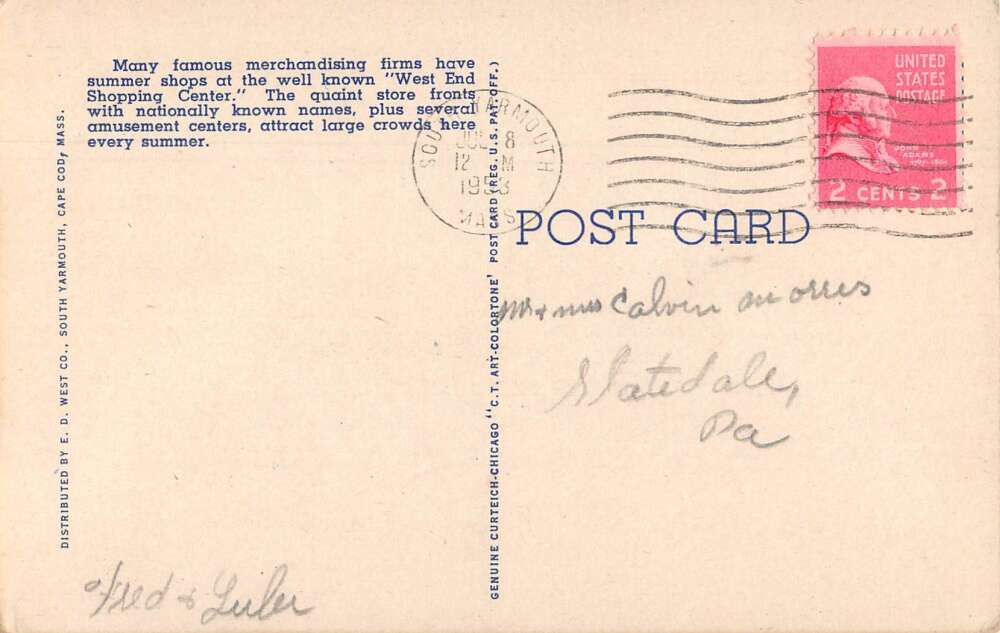 Many famous merchandising firms have
summer shops at the well known "West End
Shopping Center." The quaint store fronts
with nationally known names, plus several
amusement centers, attract large crowds here
every summer.
DISTRIBUTED BY E. D. WEST CO., SOUTH YARMOUTH, CAPE COD, MASS.
Fred &
SOUTH YARMOUTH
JUL 8
12 M
1953
MASS
GENUINE CURTEICH-CHICAGO "C.T. ART-COLORTONE" POST CARD (REG. U.S. PAT. OFF.)
UNITED
STATES
POSTAGE
JOHN
ADAMS
2 CENTS 2
POST CARD
Mr + Mrs Calvin Morris
Slatedale,
Pa